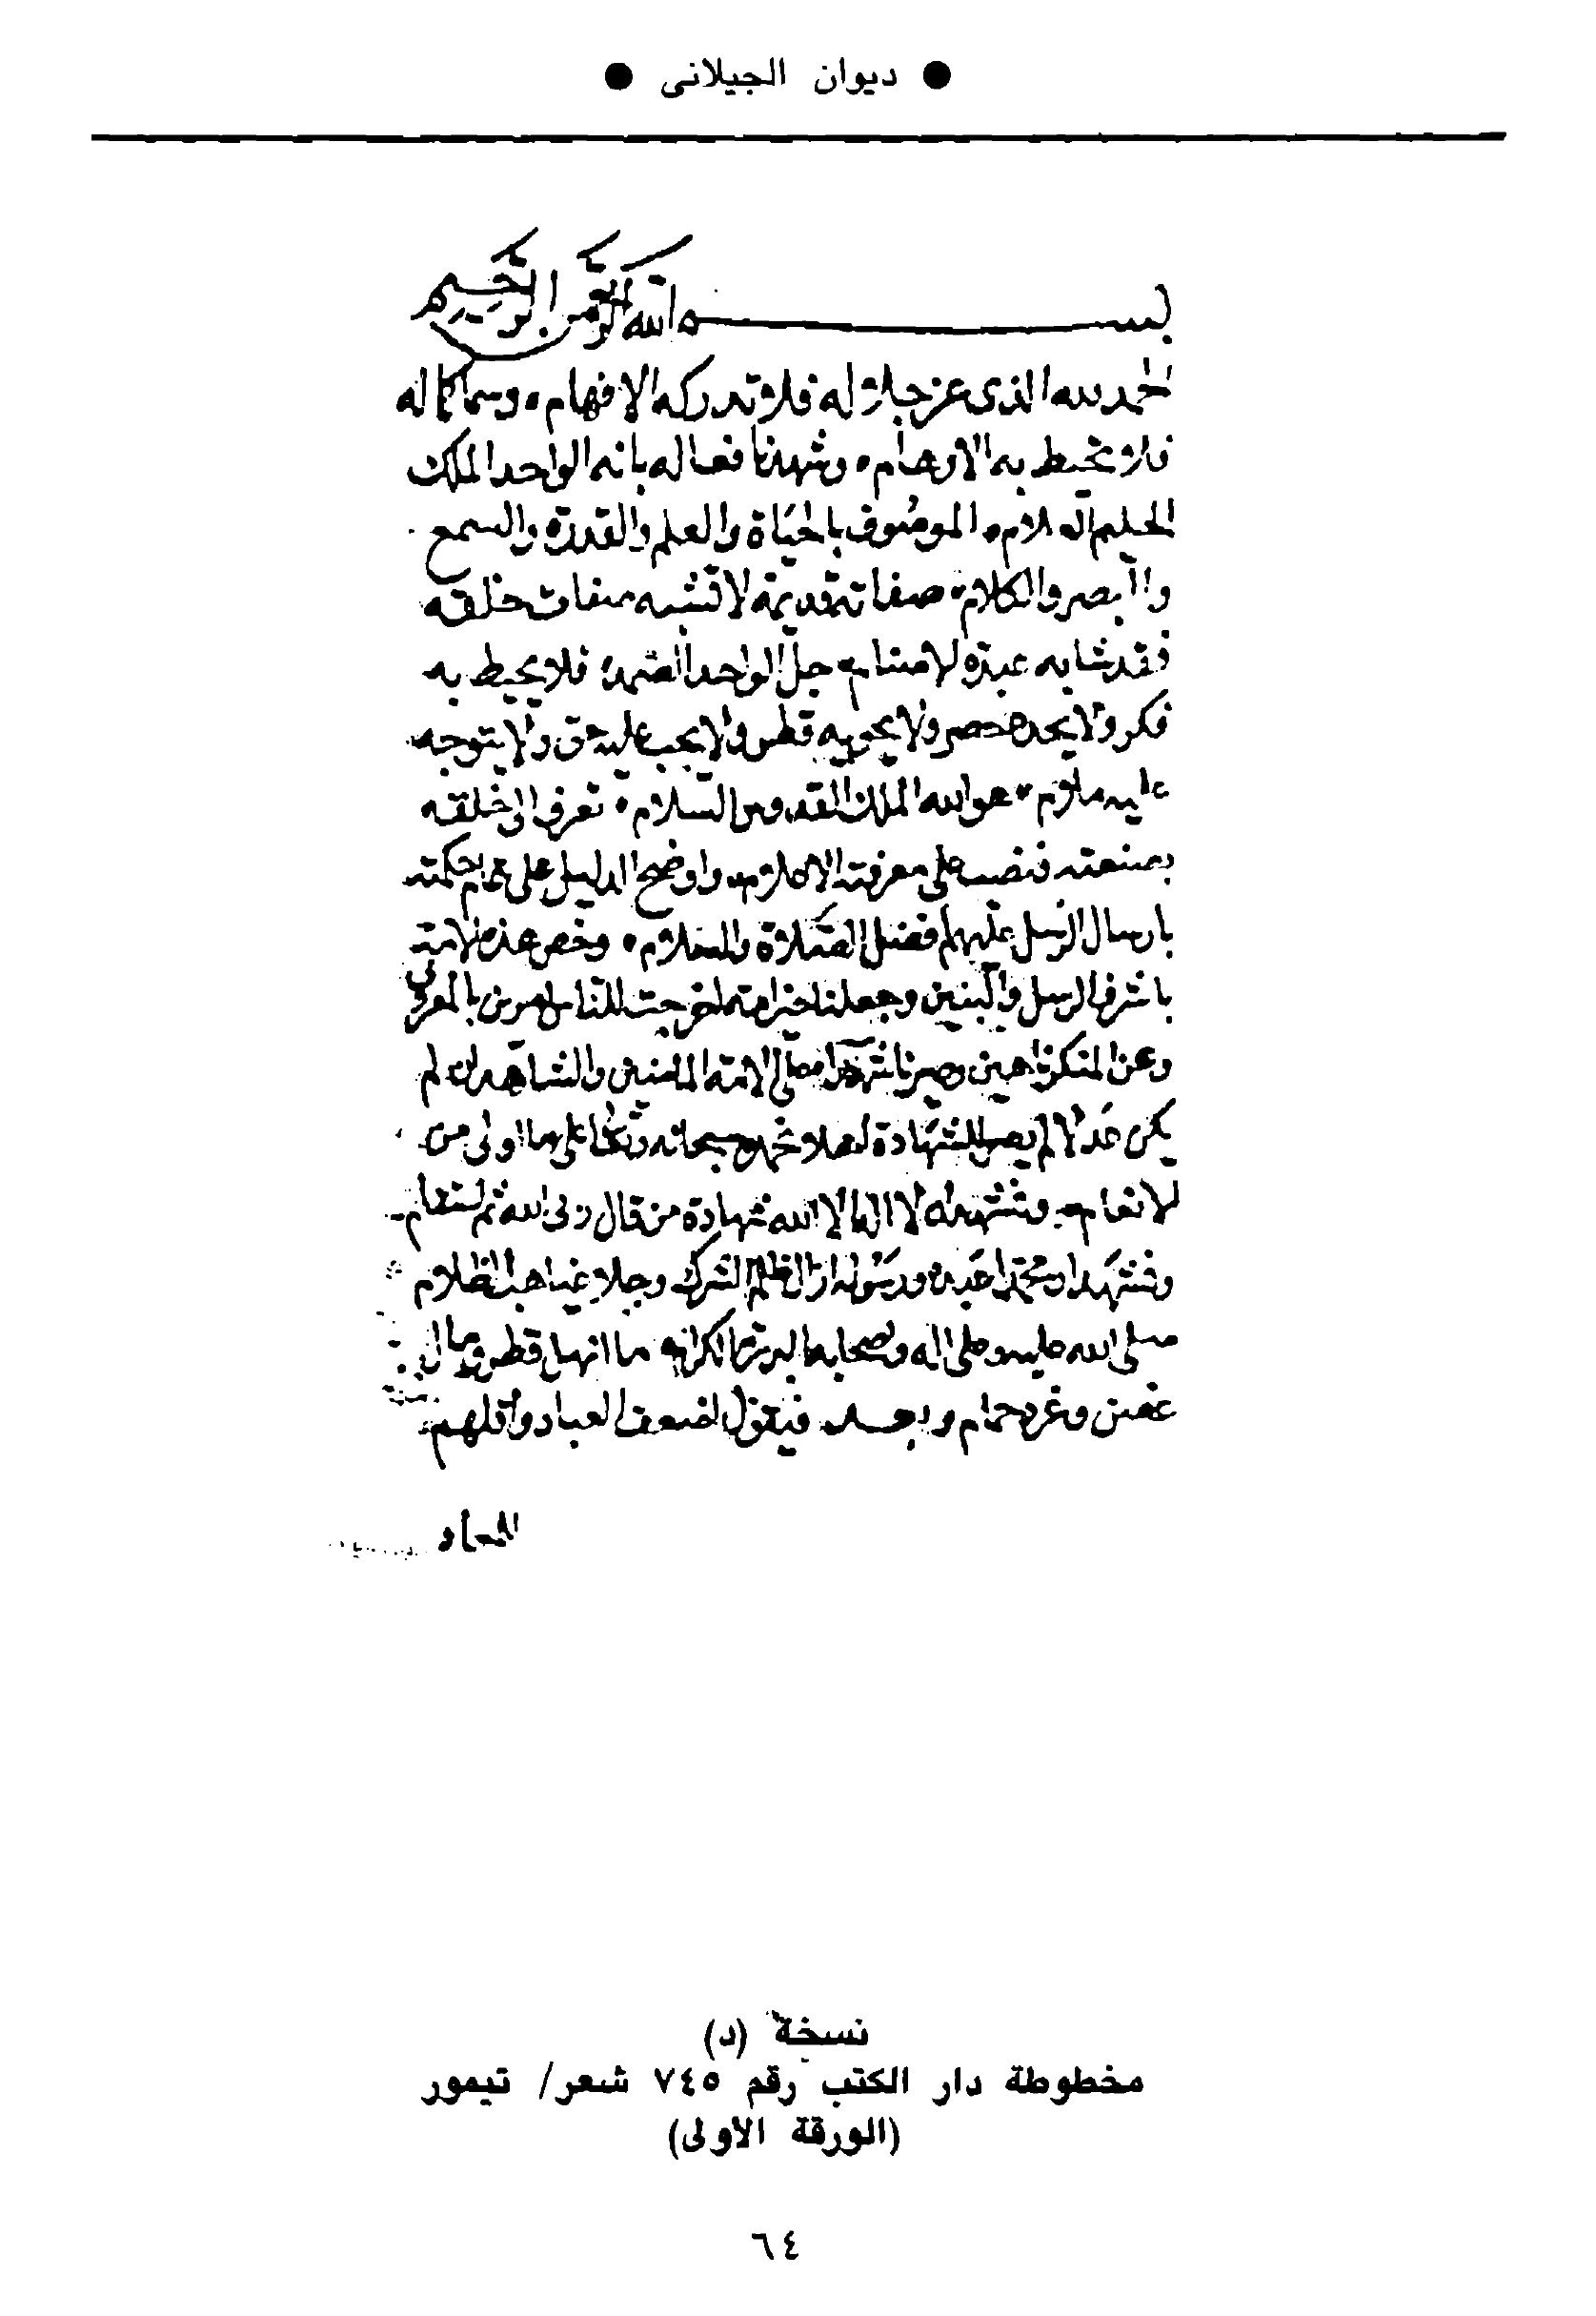 ● ديوان الجيلانى ●
بسم الله الرحمن الرحيم
الحمد لله الذى عز جلاله فلا تدركه الافهام وسما كماله
فلا يحيط به الاوهام وشهدنا فعاله بانه الواحد الملك
الموصوف بالحياة والعلم والقدرة والسمع
والبصر والكلام صفاته قديمة لا تشبه صفات خلقه
فقد شابه عبدة الاصنام جل الواحد الصمد فلا يحيط به
فكر ولا يحده حصر ولا يحويه قطر ولا يجب عليه حق ولا يتوجه
عليه ملام هو الله الملك القدوس السلام تعرف الى خلقه
بصنعته فنصب على معرفته الاعلام واوضح الدليل على حكمته
بارسال الرسل عليهم افضل الصلاة والسلام وخص هذه الامة
باشرف الرسل والنبيين وجعلنا خير امة اخرجت للناس امرين بالمعروف
وعن المنكر ناهين وصيرنا شهدا على الامة الماضين والشاهد ان لم
يكن عدلا لم يصلح للشهادة سبحانه اولى من
الانعام ونشهد ان لا اله الا الله شهادة من قال ربى الله ثم استقام
ونشهد ان محمدا عبده ورسوله ازال ظلم الشرك وجلا غياهب الظلام
صلى الله عليه وعلى اله وصحابه البررة الكرام ما انهل قطر ومال
غصن وغرد حمام وبعد فيقول اضعف العباد واقلهم
نسخة (د)
مخطوطة دار الكتب رقم ٧٤٥ شعر/ تيمور
(الورقة الاولى)
٦٤